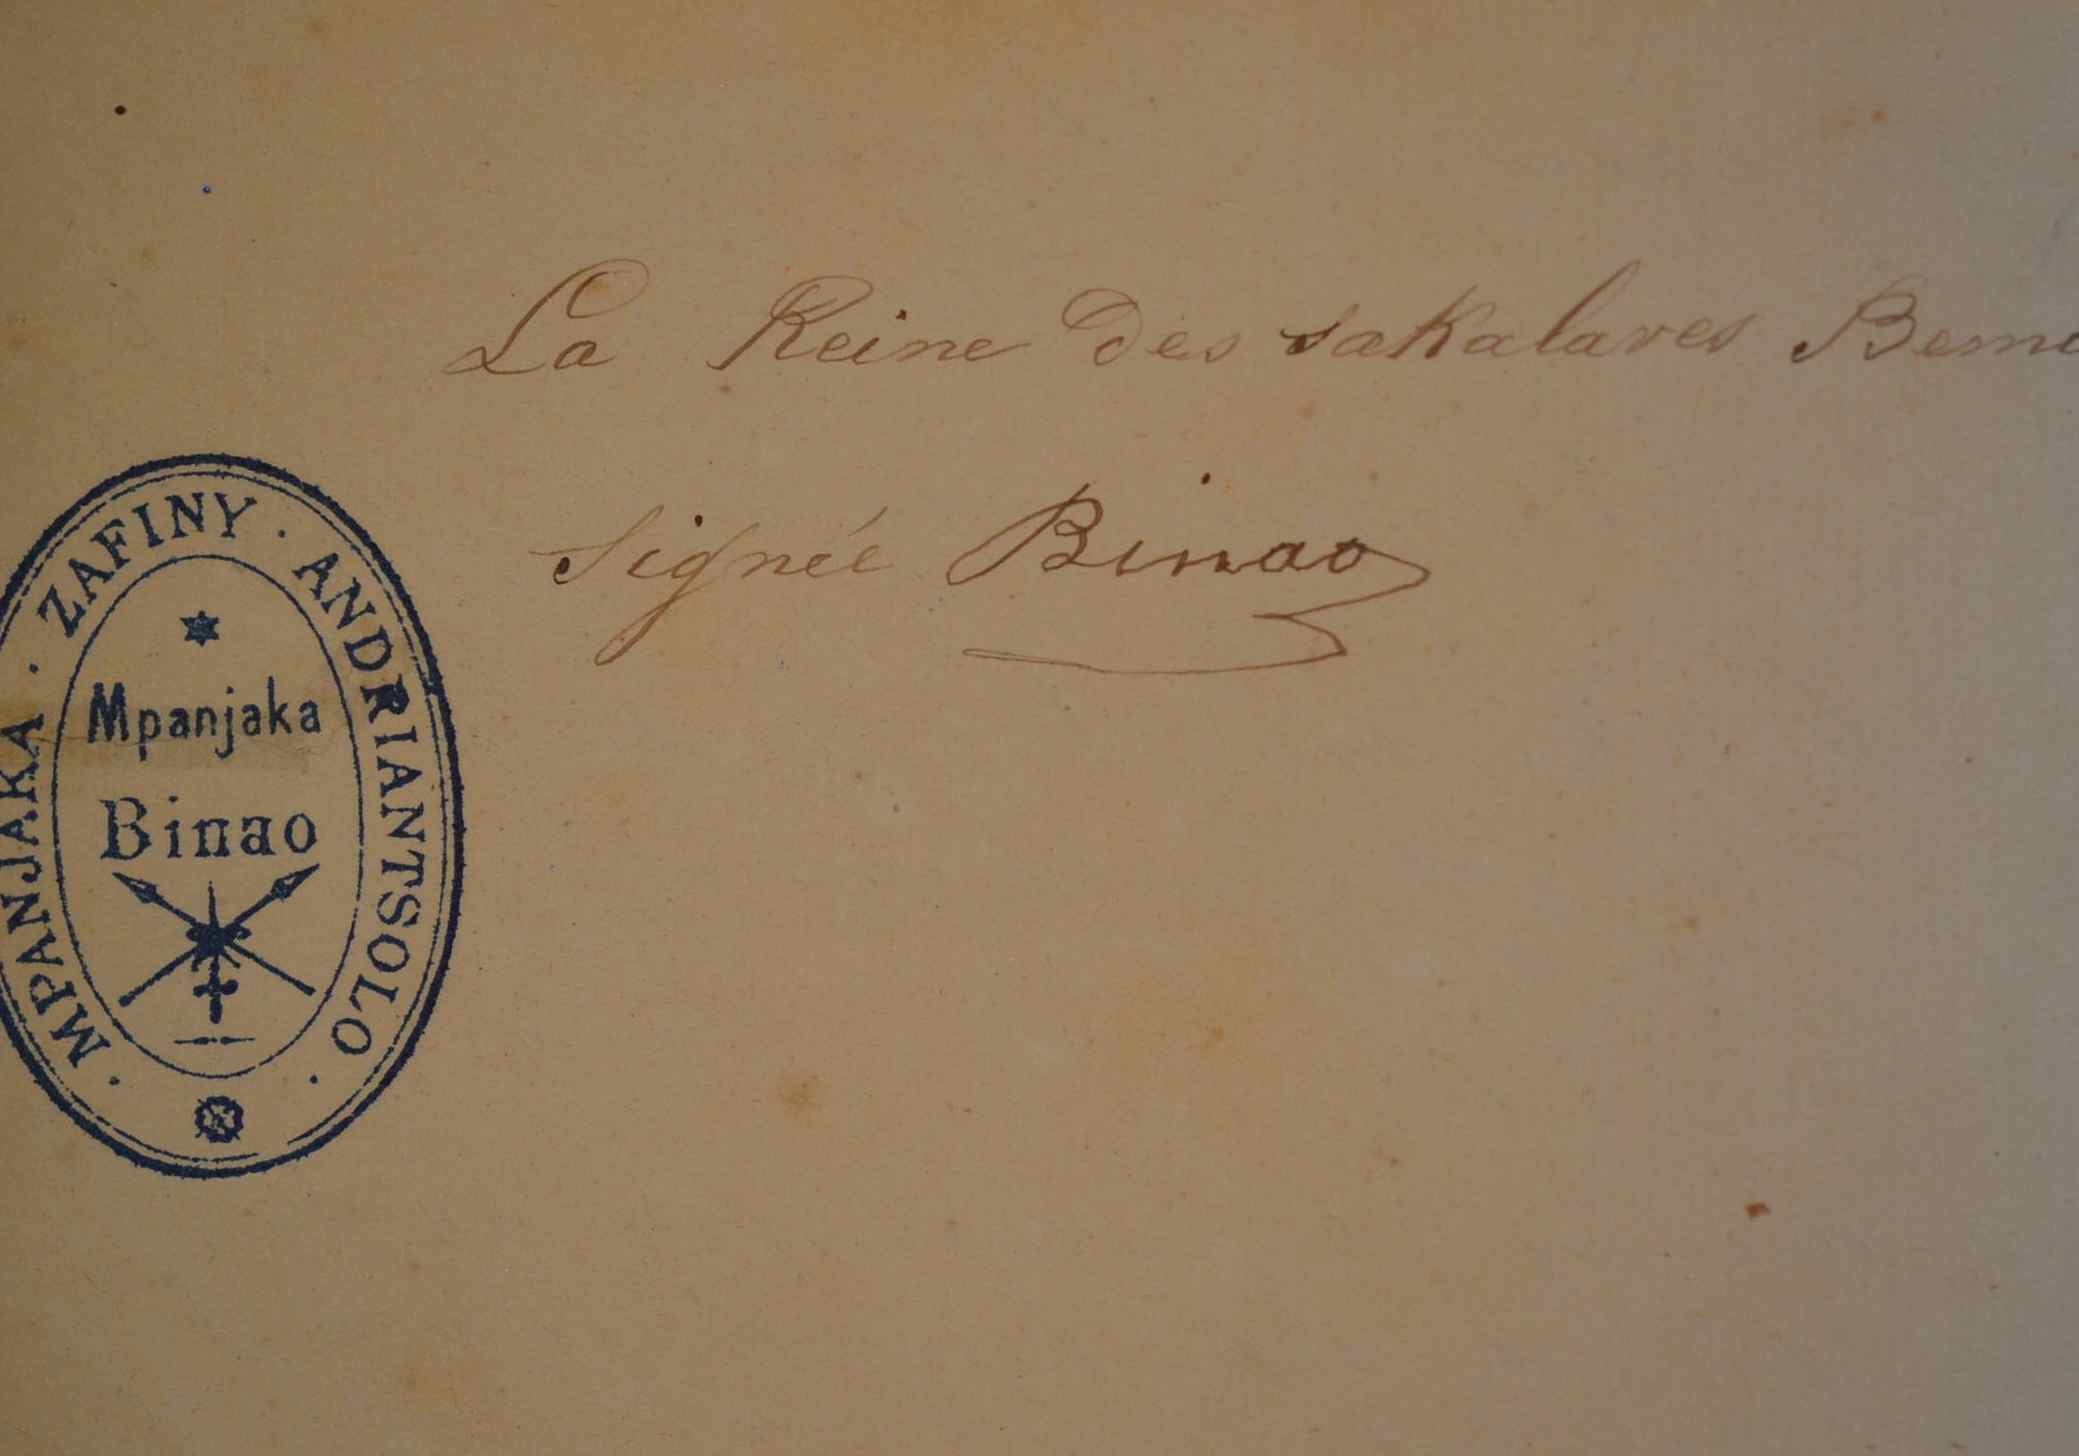 La Reine des sakalaves
signée Binao
MPANJAKA · ZAFINY · ANDRIANTSOLO
Mpanjaka
Binao